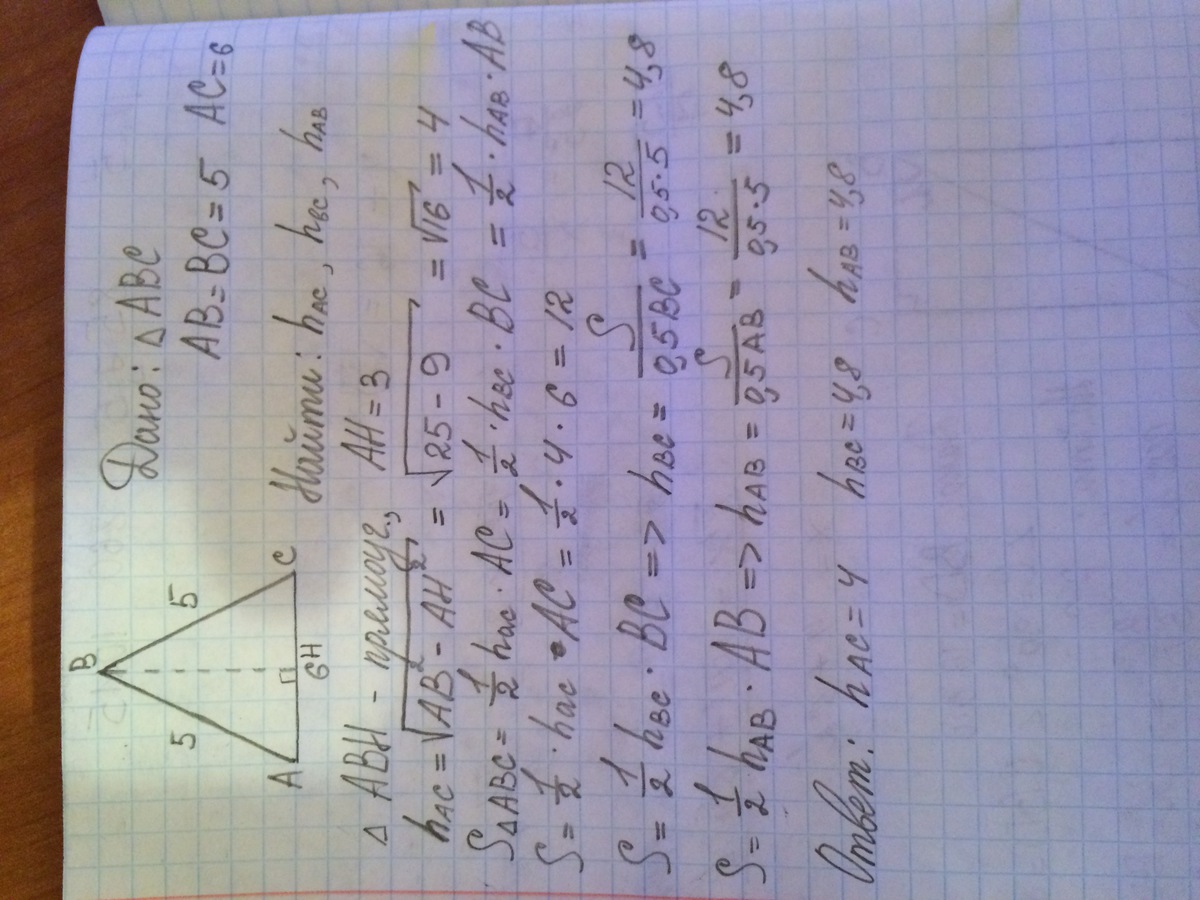 B
5 5
A 6 H C
Дано: △ ABC
AB = BC = 5 AC = 6
Найти: hAC, hBC, hAB
△ ABH - прямоуг., AH = 3
hAC = √(AB² - AH²) = √(25 - 9) = √16 = 4
S△ABC = 1/2 hac · AC = 1/2 · hBC · BC = 1/2 · hAB · AB
S = 1/2 · hac · AC = 1/2 · 4 · 6 = 12
S = 1/2 hBC · BC => hBC = S/0,5BC = 12/0,5·5 = 4,8
S = 1/2 hAB · AB => hAB = S/0,5AB = 12/0,5·5 = 4,8
Ответ: hAC = 4 hBC = 4,8 hAB = 4,8